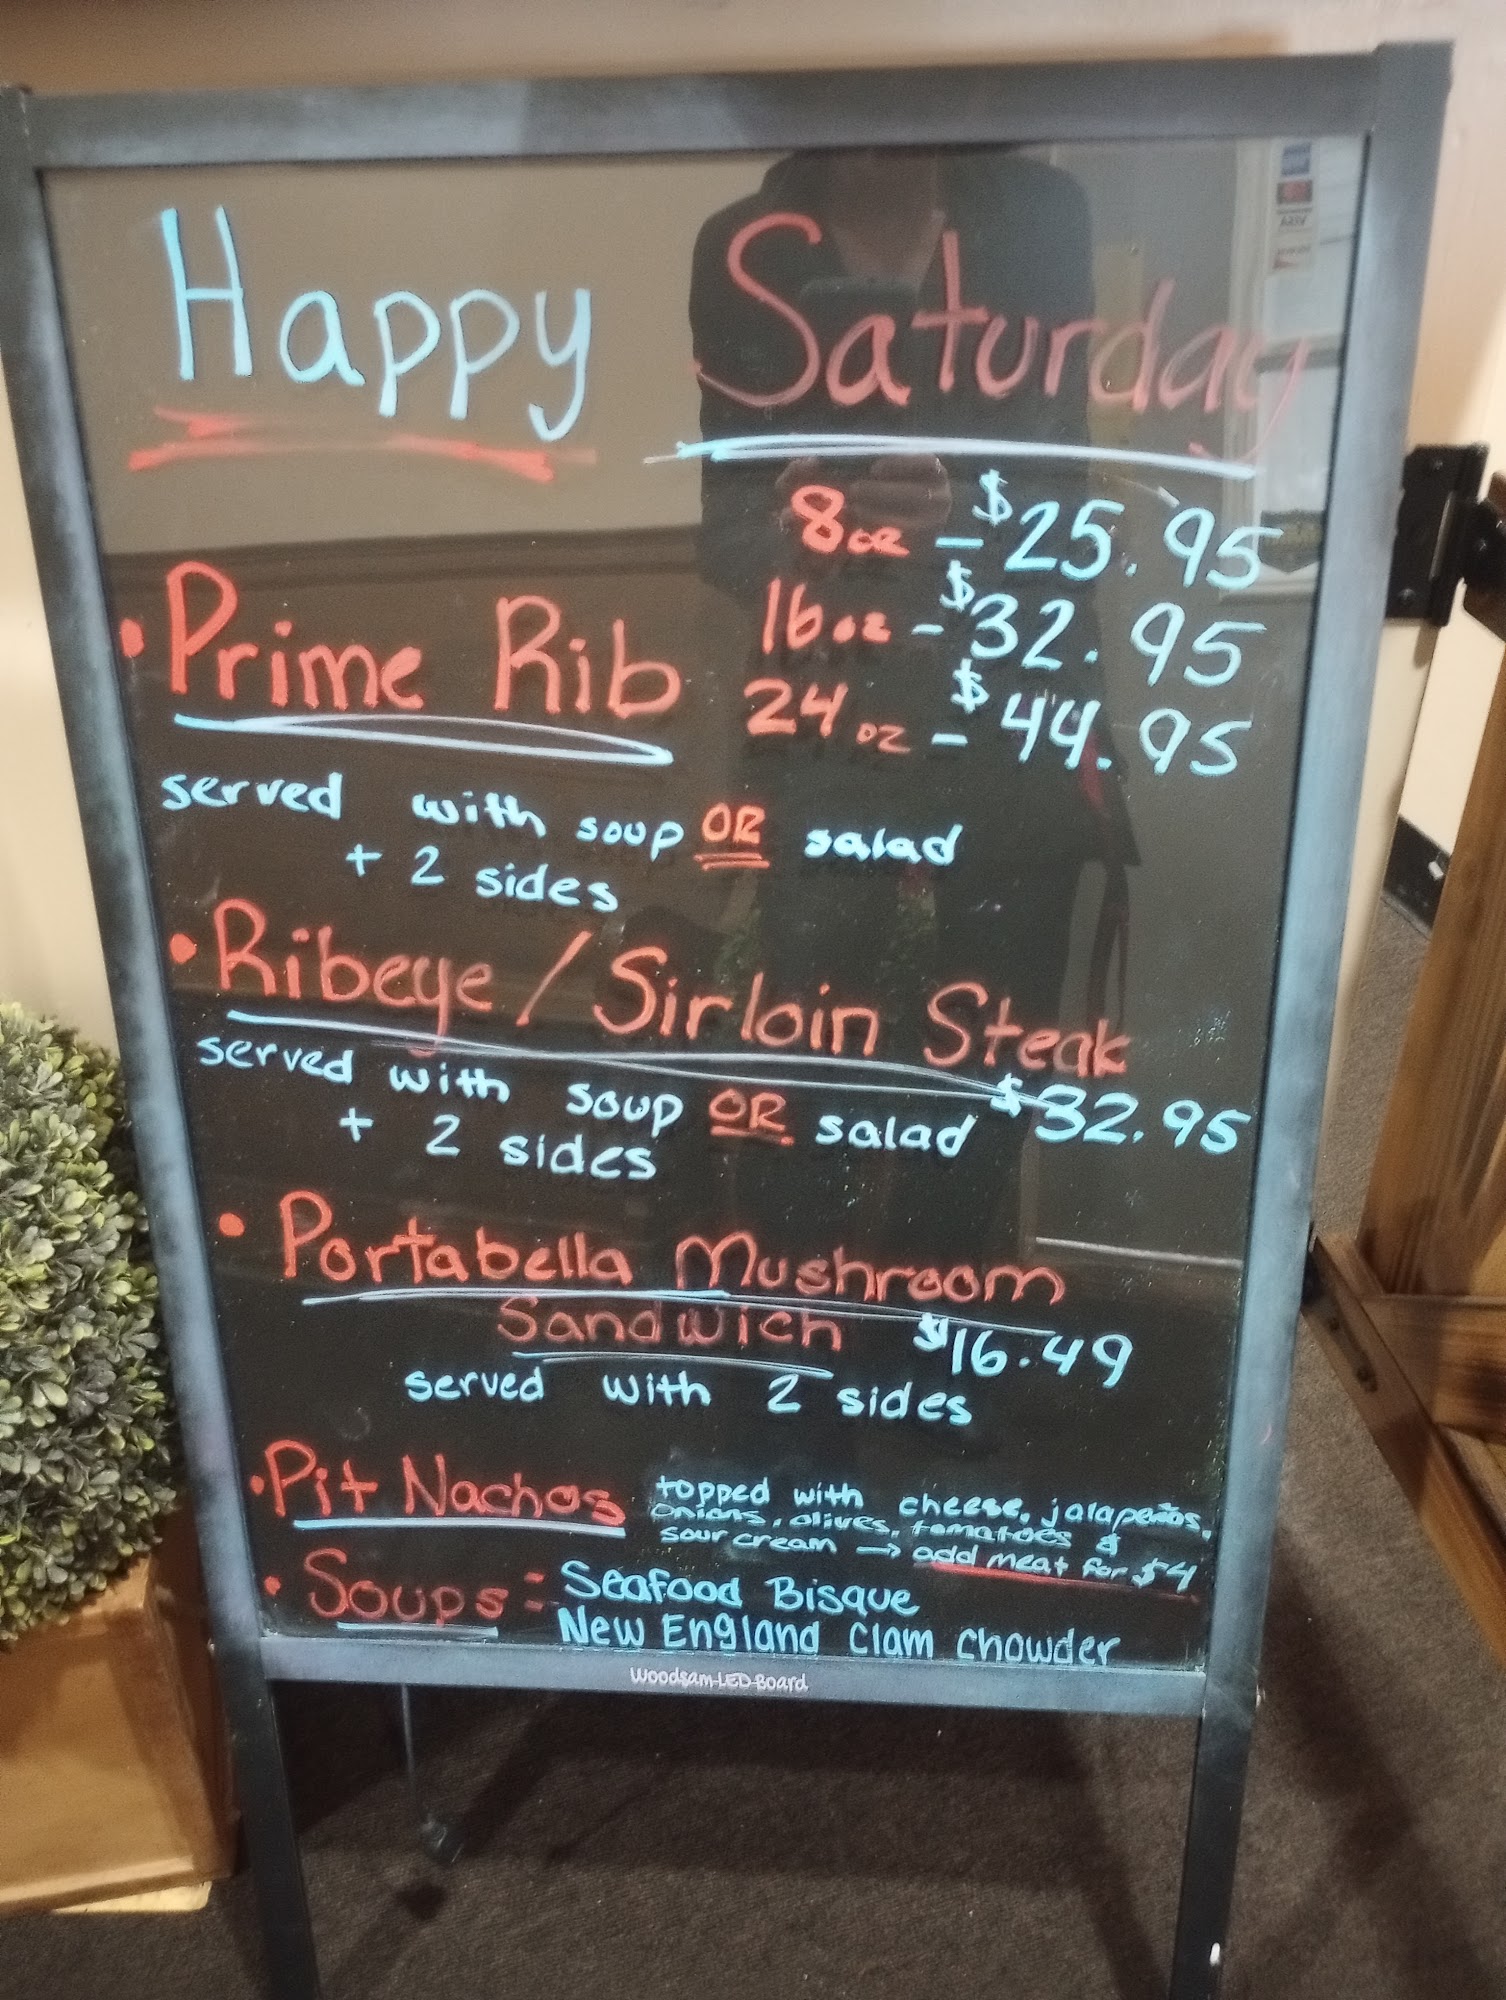 Happy Saturday
8oz - $25.95
• Prime Rib 16oz - $32.95
24oz - $44.95
served with soup OR salad
+ 2 sides
• Ribeye / Sirloin Steak
served with soup OR salad $32.95
+ 2 sides
• Portabella Mushroom
Sandwich $16.49
served with 2 sides
• Pit Nachos topped with cheese, jalapeños,
onions, olives, tomatoes &
sour cream → add meat for $4
• Soups: Seafood Bisque
New England Clam Chowder
Woodsam-LED-Board
VISA